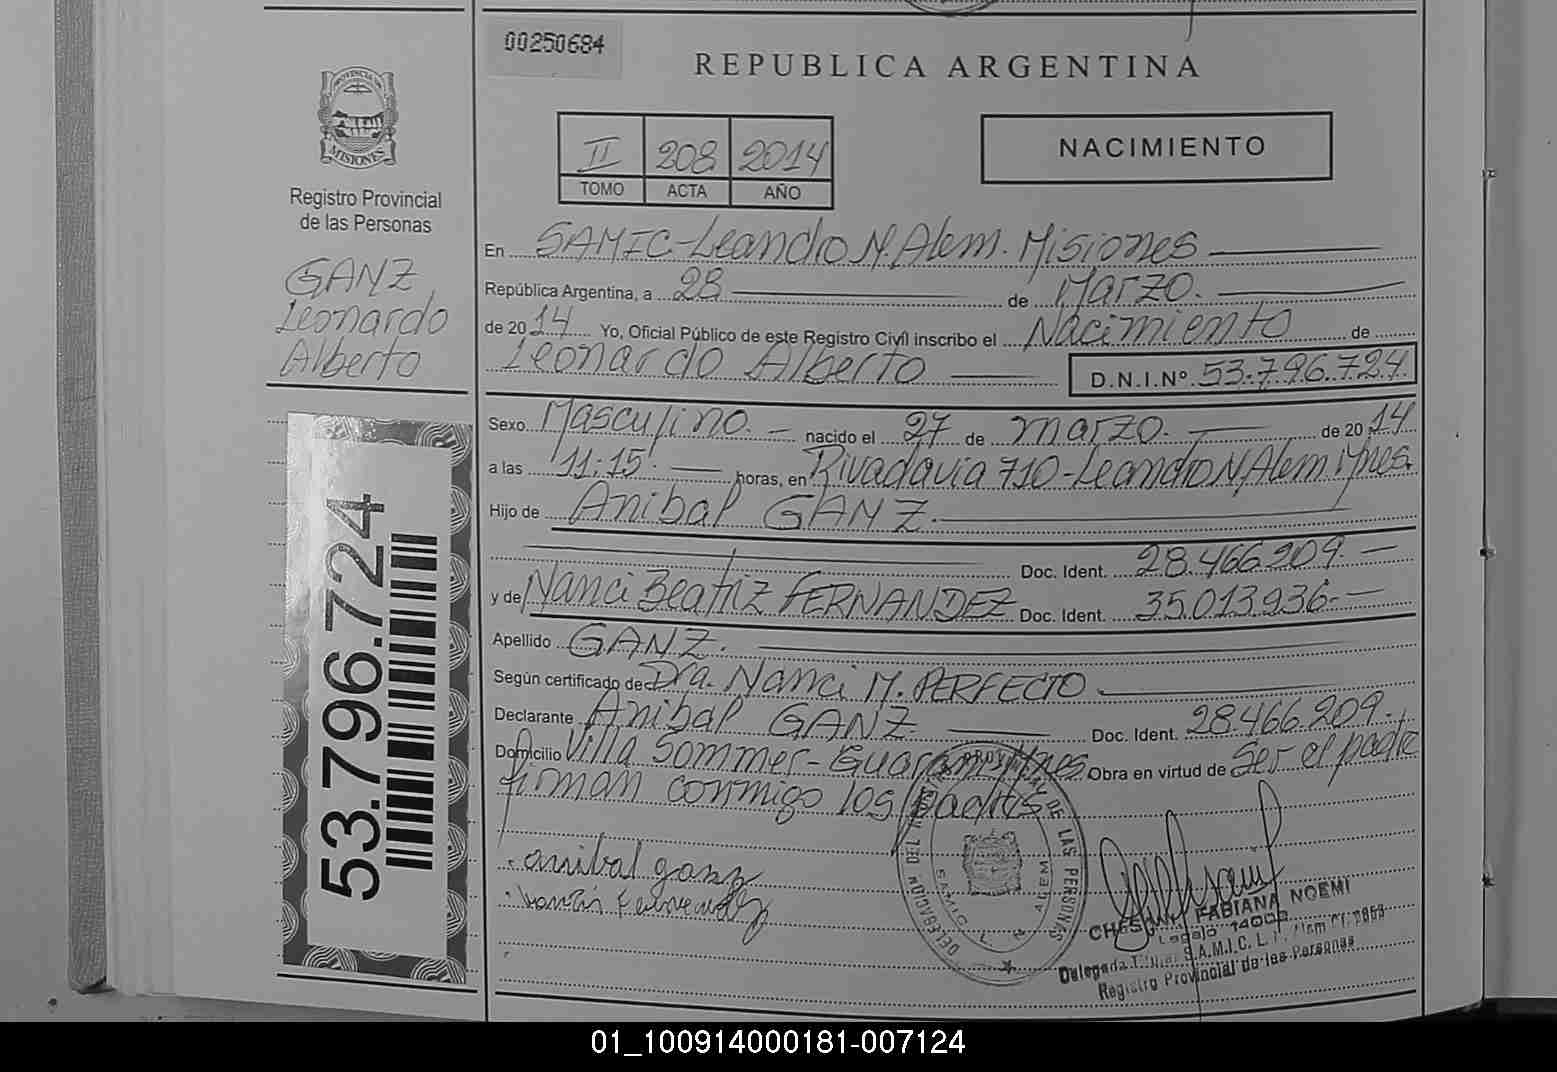 00250684
REPUBLICA ARGENTINA
PROVINCIA DE
MISIONES
Registro Provincial
de las Personas
II 208 2014
TOMO ACTA AÑO
NACIMIENTO
GANZ
Leonardo
Alberto
En SAMIC-Leandro N. Alem. Misiones
República Argentina, a 28 de Marzo.
de 2014 Yo, Oficial Público de este Registro Civil inscribo el Nacimiento de
Leonardo Alberto D.N.I.Nº 53.796.724
Sexo Masculino.- nacido el 27 de marzo. de 2014
a las 11:15. horas, en Rivadavia 710-Leandro N. Alem. Mnes.
Hijo de Anibal GANZ.
Doc. Ident. 28.466.209.-
y de Nanci Beatriz FERNANDEZ Doc. Ident. 35.013.936.-
Apellido GANZ.
Según certificado de Dra. Nanci M. PERFECTO.
Declarante Anibal GANZ. Doc. Ident. 28.466.209.-
Domicilio Villa Sommer-Guarani Mnes Obra en virtud de Ser el padre
firman conmigo los padres
anibal ganz
53.796.724
DELEGACION DEL REGISTRO PROVINCIAL DE LAS PERSONAS
SAMIC L. N. ALEM
FABIANA NOEMI
Legajo 14008
Delegada Titular S.A.M.I.C. L. N. Alem
Registro Provincial de las Personas
01_100914000181-007124